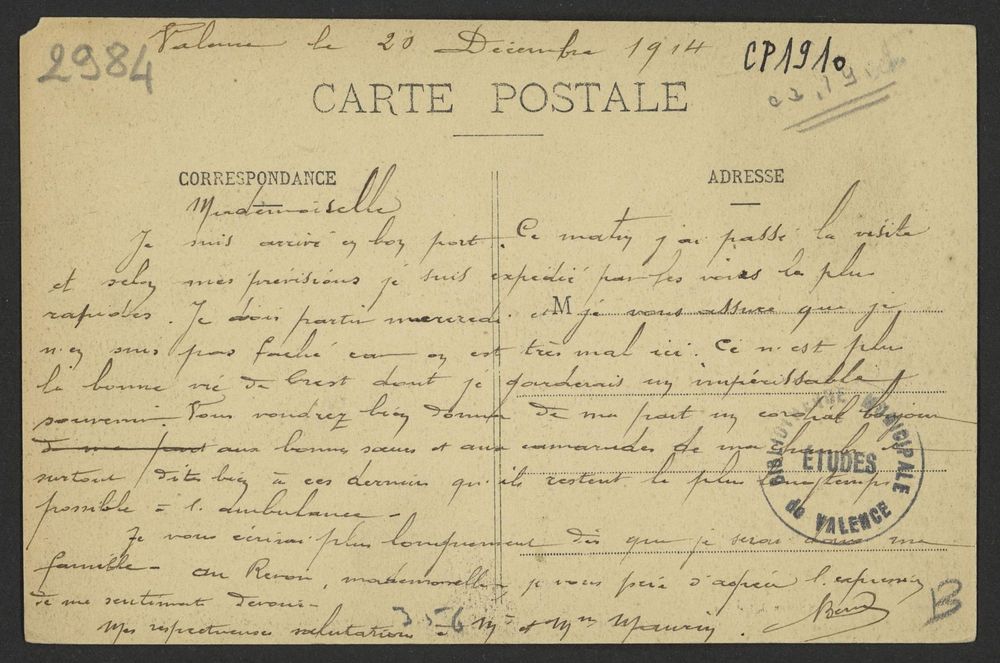 Valence le 20 Décembre 1914
2984
CP1910
CARTE POSTALE
CORRESPONDANCE
ADRESSE
Mademoiselle
Je suis arrivé en bon port. Ce matin j'ai passé la visite
et selon mes prévisions je suis expédié par les voies les plus
rapides. Je dois partir mercredi et je vous assure que je
M
n'en suis pas faché car on est très mal ici. Ce n'est plus
la bonne vie de Crest dont je garderais un impérissable
souvenir. Vous voudrez bien donner de ma part un cordial bonjour
de ma part aux bonnes sœurs et aux camarades de ma
surtout dites bien à ces derniers qu'ils restent le plus longtemps
possible à l'ambulance -
Je vous écrirai plus longuement dès que je serai dans ma
famille - Au Revoir, mademoiselle, je vous prie d'agréer l'expression
de me sentiment devoué -
Mes respectueuses salutations à Mr et Mme Maurin.
3 56
B
BIBLIOTHÈQUE MUNICIPALE
ÉTUDES
de VALENCE